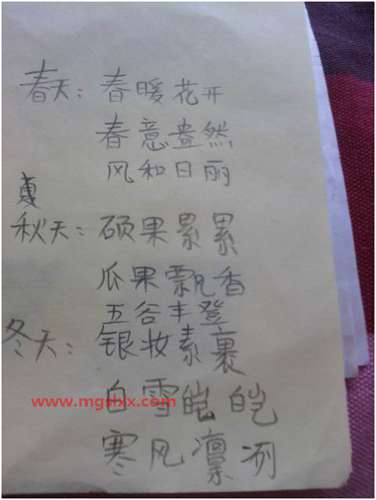 春天：春暖花开
春意盎然
风和日丽
夏
秋天：硕果累累
瓜果飘香
五谷丰登
冬天：银妆素裹
www.mgshxx.com
白雪皑皑
寒风凛冽